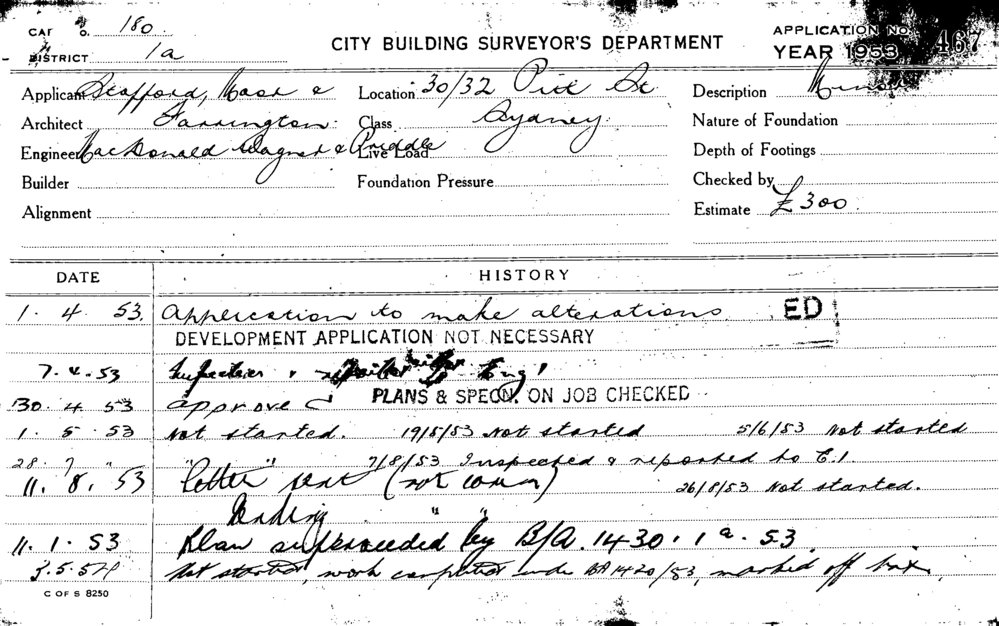 CITY BUILDING SURVEYOR'S DEPARTMENT
180
DISTRICT 1a
APPLICATION No. 467
YEAR 1953
Applicant Stafford, Moor &
Location 30/32 Pitt St
Description
Architect Farrington
Class Sydney
Nature of Foundation
Engineer MacDonald Wagner & Priddle
Live Load
Depth of Footings
Builder
Foundation Pressure
Checked by
Alignment
Estimate £300
DATE HISTORY
1. 4. 53. Application to make alterations. ED
DEVELOPMENT APPLICATION NOT NECESSARY
7.4.53 Eng'
30. 4 53 approved PLANS & SPECN. ON JOB CHECKED
1. 5. 53 Not started. 19/5/53 Not started 5/6/53 Not started
28. 7 " "letter" 7/8/53 Inspected & reported to C.I
11. 8. 53 sent (not comm) 26/8/53 Not started.
Pending " "
11. 1. 53 Plan superseeded by B/A. 1430. 1a. 53.
3.5.54 Not started, work completed under BA 1430/53, marked off
C OF S 8250